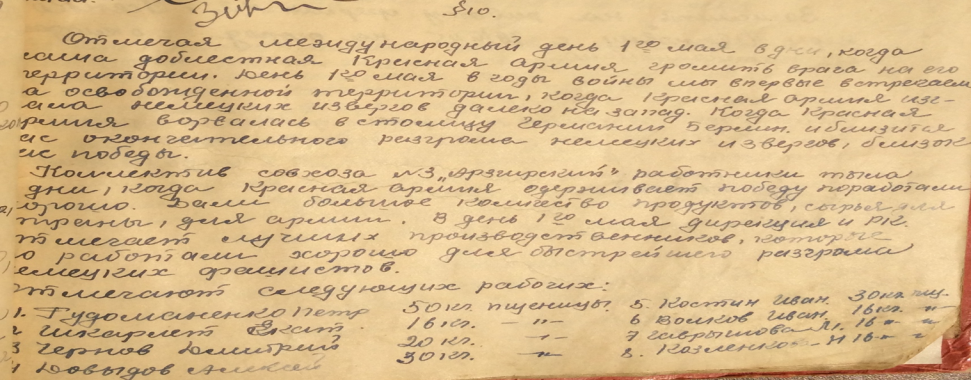 §10.
Отмечая международный день 1го мая в дни, когда
наша доблестная Красная армия громить врага на его
территории. День 1го мая в годы войны мы впервые встречаем
на освобожденной территории, когда Красная армия изг-
нала немецких извергов далеко на запад. Когда Красная
армия ворвалась в столицу Германии Берлин. и близится
час окончательного разгрома немецких извергов, близок
час победы.
Коллектив совхоза №3 „Арзгирский" работники тыла
дни, когда Красная армия одерживает победу поработали
хорошо. Дали большое количество продуктов, сырья для
страны, для армии. В день 1го мая дирекция и РК.
отмечает лучших производственников, которые
работали хорошо для быстрейшего разгрома
немецких фашистов.
отмечают следующих рабочих:
1. Гудоманенко Петр 50 кг. пшеницы 5. Костин Иван. 30 кг. пш.
2 Шкарлет Екат. 16 кг. —"— 6 Волков Иван. 16 кг. "
3 Чернов Дмитрий 20 кг. —"— 7 Гаврилова М. 16 " "
4 Довыдов Алексей 30 кг. " 8. Козленко Н 16 " "